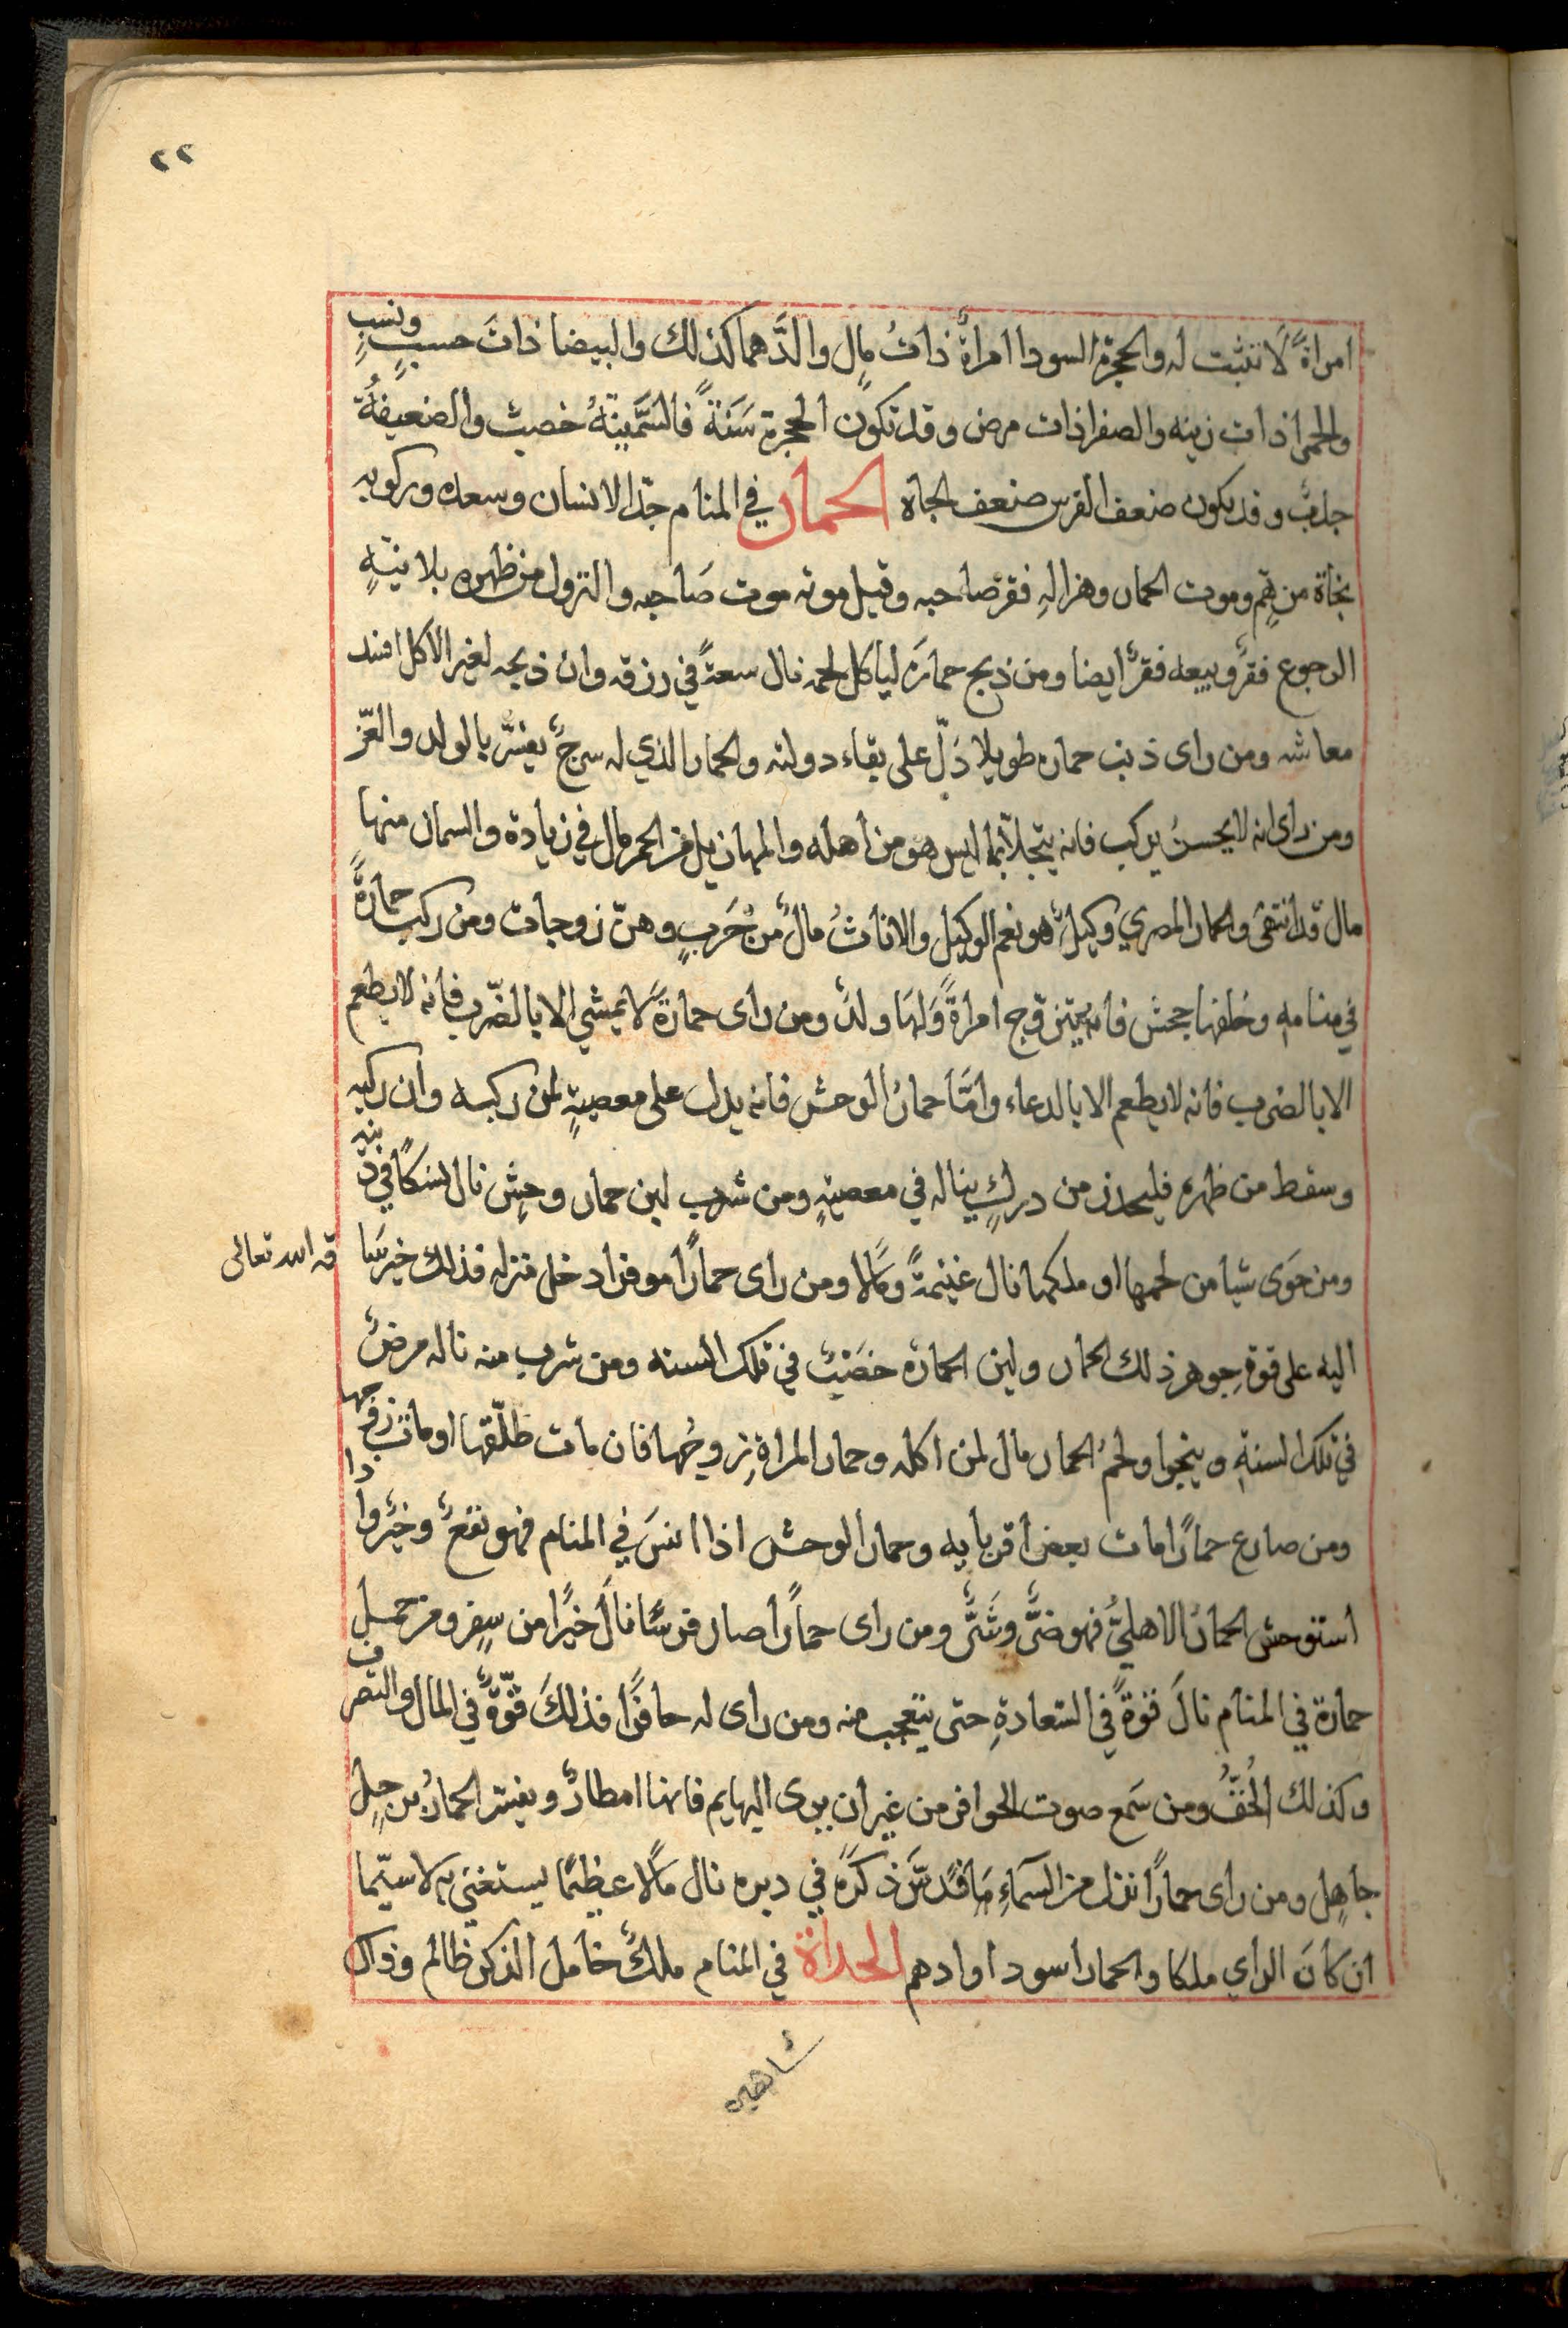 ٢٢
امراةً لا تثبت له والحجرة السودا امراةٌ ذاتُ مالٍ والدَّهما كذلك والبيضا ذاتَ حسبٍ ونسبٍ
والحمرا ذات زينه والصفرا ذات مرض وقد تكون الحجرة سَنَةً فالسَّمينةُ خصبٌ والضعيفةُ
جدبٌ وقد يكون ضعف الفرس ضعف الجاه الحمار في المنام جدّ الانسان وسعده وركوبه
نجاة من همٍ وموت الحمار وهزالهِ فقر صاحبه وقيل موته موت صَاحبه والنزول من ظهره بلا نيّةِ
الرجوع فقرٌ وبيعه فقرٌ ايضا ومن ذبح حمارَه لياكل لحمه نال سعةً في رزقه وان ذبحه لغير الاكل افسد
معاشه ومن راى ذنب حماره طويلا دَلّ على بقاء دولته والحمار الذي له سرجٌ يفسَّر بالولد والعزّ
ومن راى انه لا يحسنُ يركب فانه يتجلّا بما ليس هو من اهله والمهازيل من الحمر مال في زيادة والسمان منها
مال قد انتهَى والحمار المصري وَكيلٌ هو نعم الوكيل والاناثُ مالٌ مُنجَربٍ وهنّ زوجات ومن ركب حمارةً
في منامه وخلفها جحش فانه يتزوّج امراةً وَلهَا ولدٌ ومن راى حمارةً لا يمشي الا بالضّرب فانه لا يطعم
الا بالضرب فانه لا يطعم الا بالدعاء وامَّا حمارُ الوحش فانه يدل على معصيةٍ لمن ركبه وان ركبه
وسقط من ظهره فليحذر من دركٍ يناله في معصيةٍ ومن شرب لبن حمار وحشٍ نال نسكًا في دينه
ومن حوَى شيا من لحمها او ملكها نال غنيمةً ومَالا ومن راى حمارًا موقرا دخل منزله فذلك خير سَا
قه الله تعالى
اليه على قوةِ جوهر ذلك الحمار ولبن الحماره خصَبٌ في تلك السنه ومن شرب منه ناله مرضٌ
في تلك السنةِ وينجوا ولحمُ الحمار مال لمن اكله وحمار المراةِ زوجُها فان مات طلّقها او مات زوجها
ومن صارع حمارًا مات بعض اقربايه وحمار الوحش اذا انسَ في المنام فهو نفعٌ وخيرٌ واذا
استوحش الحمارُ الاهليُّ فهو ضرٌّ وشَرٌّ ومن راى حمارًا صار فرسًا نالَ خيرًا من سِفر ومن حمل
حمارة في المنام نالَ قوةً في السّعادةِ حتى يتعجب منه ومن راى له حافرًا فذلكَ قوّةٌ في المال والتصرف
وكذلك الخُفُّ ومن سَمع صوت الحوافر من غير ان يرى البهايم فانها امطارٌ ويفسّر الحمارُ برجلٍ
جاهلٍ ومن راى حمارًا نزل من السّماءِ مَا قدسَّ ذكرَه في دبره نال مَالًا عظيمًا يستغني به لا سيّما
ان كَانَ الراي ملكا والحمار اسود او ادهم الحداة في المنام ملكٌ خامل الذكر ظالم وذاك
شاهين